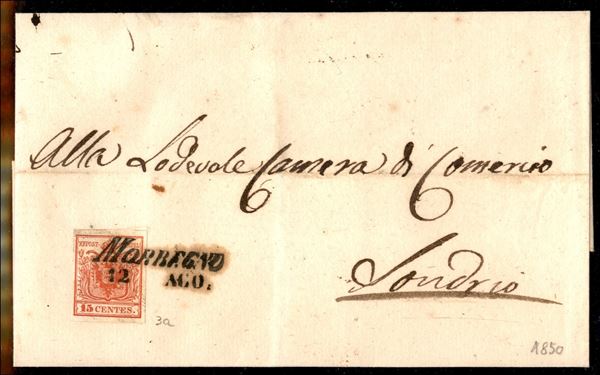 Alla Lodevole Camera di Comercio
Sondrio
KKPOST-
MORBEGNO
12 AGO.
15 CENTES.
3a
1850